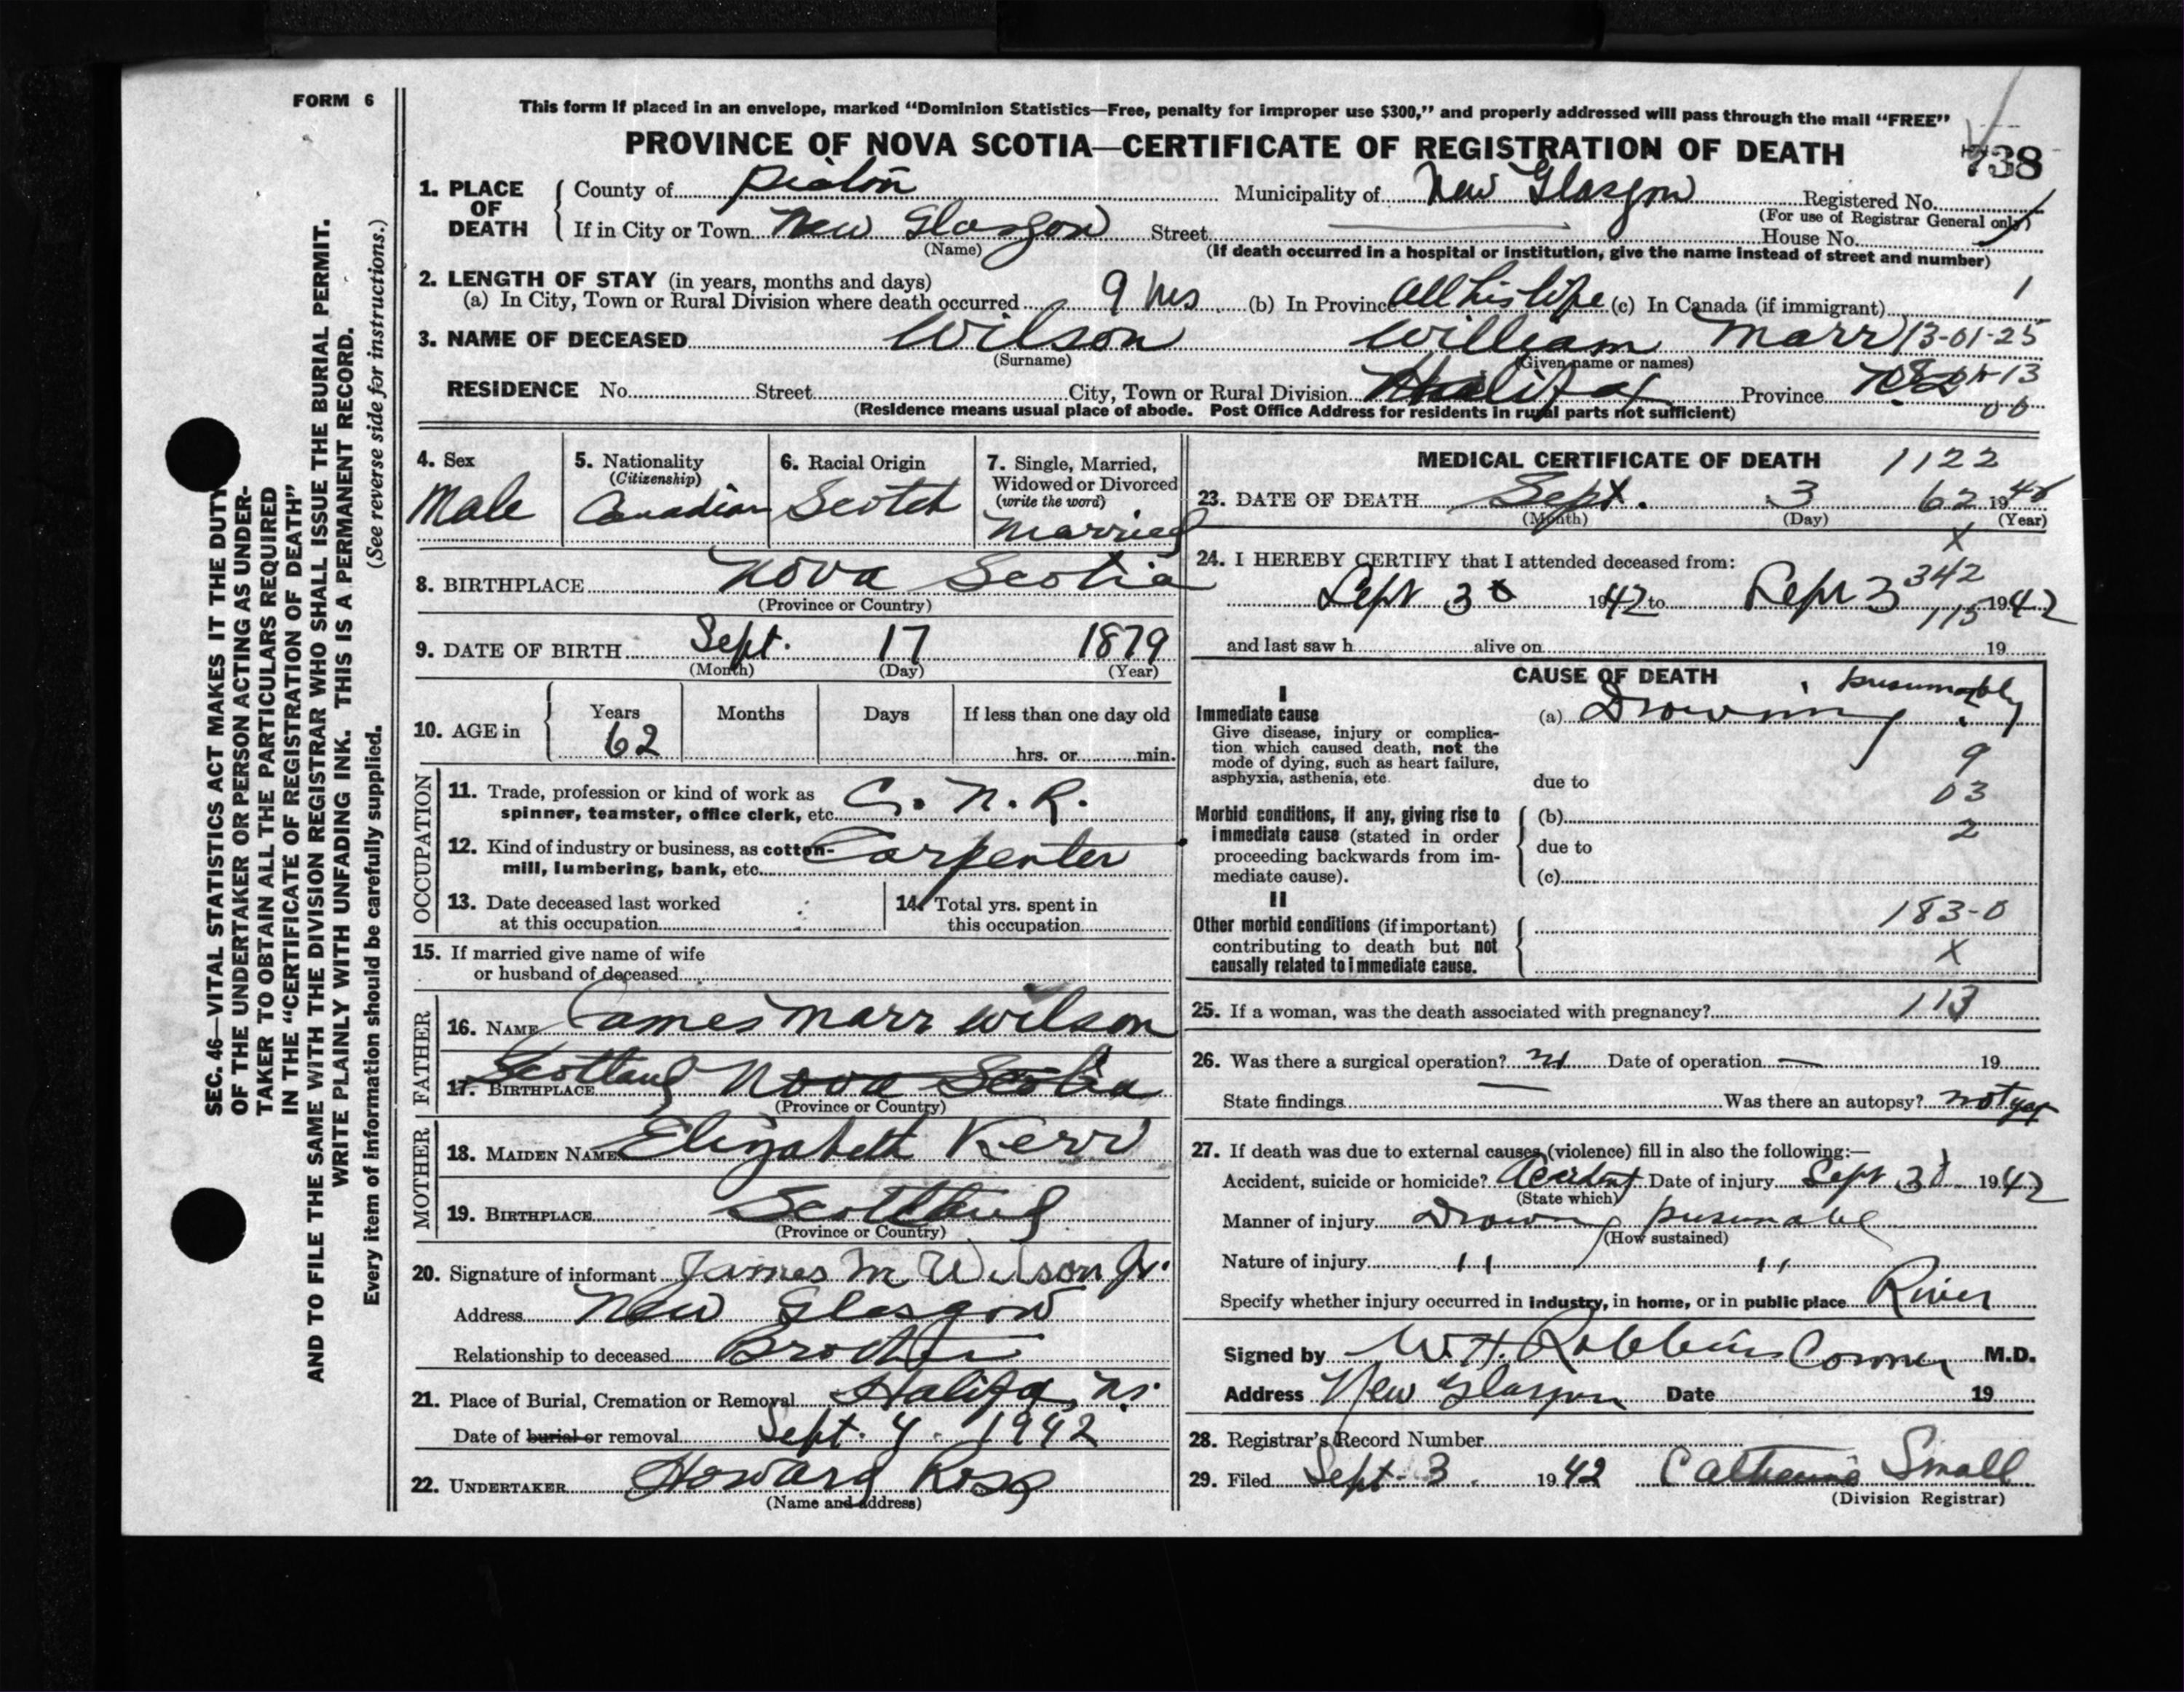 FORM 6
This form if placed in an envelope, marked “Dominion Statistics—Free, penalty for improper use $300,” and properly addressed will pass through the mail “FREE”
PROVINCE OF NOVA SCOTIA—CERTIFICATE OF REGISTRATION OF DEATH
738
1. PLACE OF DEATH
County of Pictou Municipality of New Glasgow Registered No.
(For use of Registrar General only)
If in City or Town New Glasgow Street House No.
(Name)
(If death occurred in a hospital or institution, give the name instead of street and number)
2. LENGTH OF STAY (in years, months and days)
(a) In City, Town or Rural Division where death occurred 9 hrs (b) In Province all his life (c) In Canada (if immigrant) 1
3. NAME OF DECEASED Wilson William Marr 13-01-25
(Surname) (Given name or names)
RESIDENCE No. Street City, Town or Rural Division Halifax Province
(Residence means usual place of abode. Post Office Address for residents in rural parts not sufficient)
4. Sex
Male
5. Nationality
(Citizenship)
Canadian
6. Racial Origin
Scotch
7. Single, Married,
Widowed or Divorced
(write the word)
Married
8. BIRTHPLACE Nova Scotia
(Province or Country)
9. DATE OF BIRTH Sept. 17 1879
(Month) (Day) (Year)
10. AGE in
Years Months Days If less than one day old
62 hrs. or min.
OCCUPATION
11. Trade, profession or kind of work as
spinner, teamster, office clerk, etc. C. N. R.
12. Kind of industry or business, as cotton-
mill, lumbering, bank, etc. Carpenter
13. Date deceased last worked
at this occupation
14. Total yrs. spent in
this occupation
15. If married give name of wife
or husband of deceased
FATHER
16. NAME James Marr Wilson
17. BIRTHPLACE Scotland Nova Scotia
(Province or Country)
MOTHER
18. MAIDEN NAME Elizabeth Kerr
19. BIRTHPLACE Scotland
(Province or Country)
20. Signature of informant James M Wilson Jr.
Address New Glasgow
Relationship to deceased Brother
21. Place of Burial, Cremation or Removal Halifax, N.S.
Date of burial or removal Sept. 4. 1942
22. UNDERTAKER Howard Ross
(Name and address)
MEDICAL CERTIFICATE OF DEATH 1122
23. DATE OF DEATH Sept. 3 62 19
(Month) (Day) (Year)
X
24. I HEREBY CERTIFY that I attended deceased from:
342
Sept 3 1942 to Sept 3 1942
115
and last saw h alive on 19
CAUSE OF DEATH
I
Immediate cause
Give disease, injury or complica-
tion which caused death, not the
mode of dying, such as heart failure,
asphyxia, asthenia, etc.
(a) Drowning, presumably
9
due to
03
Morbid conditions, if any, giving rise to
immediate cause (stated in order
proceeding backwards from im-
mediate cause).
(b)
2
due to
(c)
II
Other morbid conditions (if important)
contributing to death but not
causally related to immediate cause.
183-0
X
25. If a woman, was the death associated with pregnancy? 113
26. Was there a surgical operation? Date of operation — 19
State findings — Was there an autopsy? not yet
27. If death was due to external causes (violence) fill in also the following:—
Accident, suicide or homicide? Accident Date of injury Sept 3 1942
(State which)
Manner of injury Drowning
(How sustained)
Nature of injury " "
Specify whether injury occurred in industry, in home, or in public place River
Signed by W. H. Robbins Coroner M.D.
Address New Glasgow Date 19
28. Registrar's Record Number
29. Filed Sept. 3. 1942 Catherine Small
(Division Registrar)
SEC. 46—VITAL STATISTICS ACT MAKES IT THE DUTY
OF THE UNDERTAKER OR PERSON ACTING AS UNDER-
TAKER TO OBTAIN ALL THE PARTICULARS REQUIRED
IN THE “CERTIFICATE OF REGISTRATION OF DEATH”
AND TO FILE THE SAME WITH THE DIVISION REGISTRAR WHO SHALL ISSUE THE BURIAL PERMIT.
WRITE PLAINLY WITH UNFADING INK. THIS IS A PERMANENT RECORD.
Every item of information should be carefully supplied. (See reverse side for instructions.)